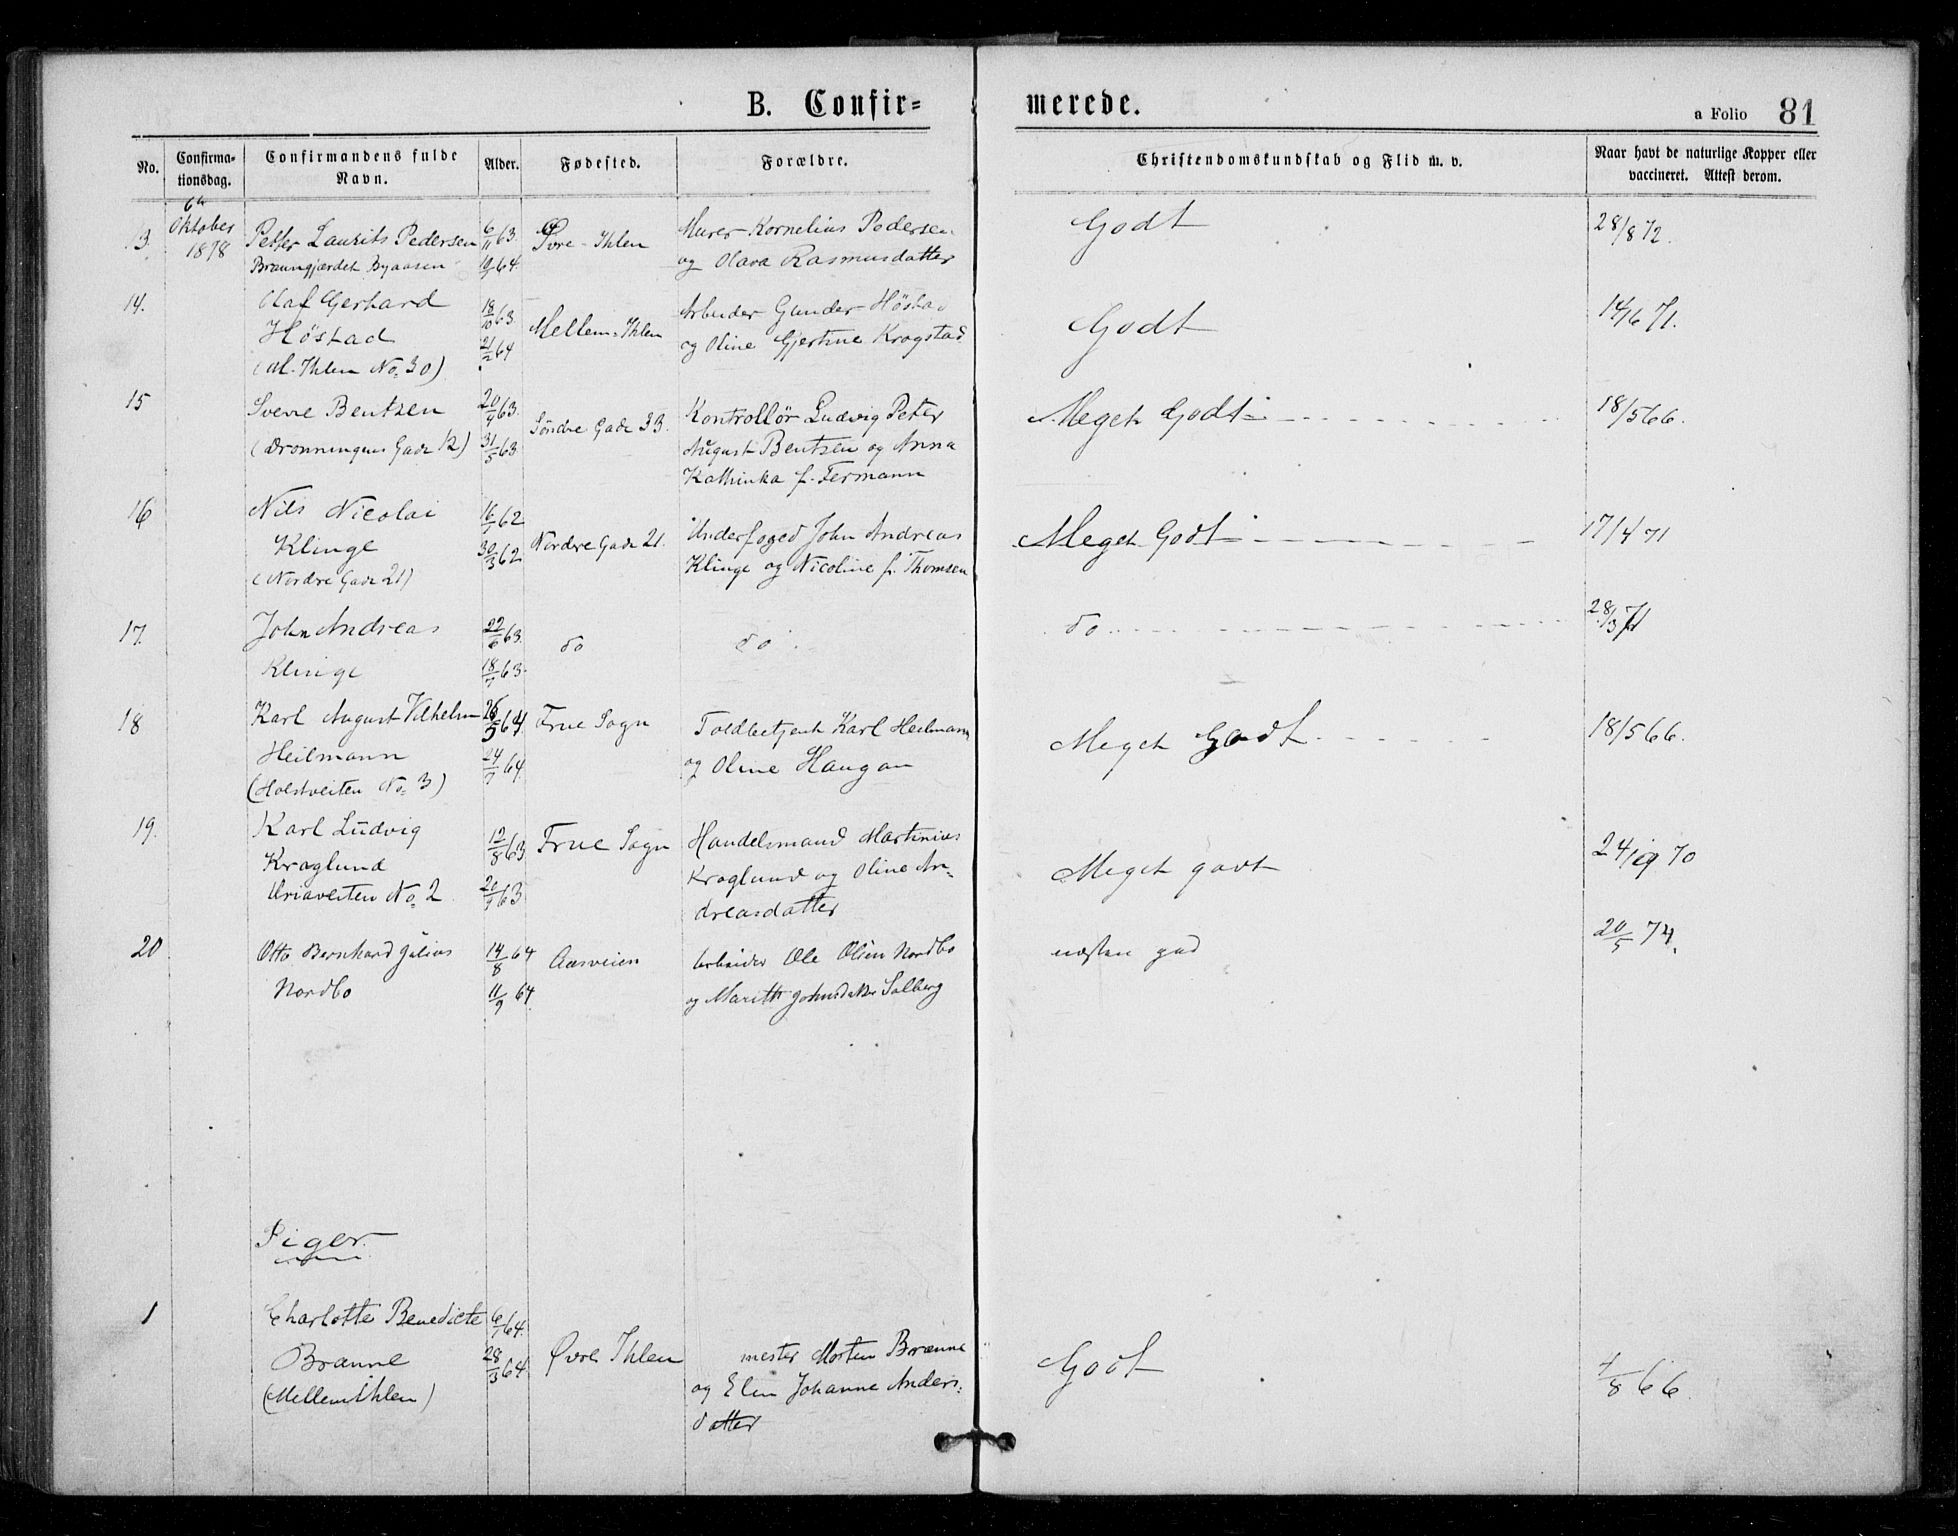 B. Confir=
merede.
a Folio 81
No. Confirma-tionsdag. Confirmandens fulde Navn. Alder. Fødested. Forældre. Christendomskundskab og Flid m. v. Naar havt de naturlige Kopper eller vaccineret. Attest derom.
13. Oktober 1878 Petter Laurits Pedersen 6/11 63. Øvre-Ihlen Murer Kornelius Pedersen Godt 28/8 72.
Byaasen 64. og Olava Rasmusdatter
14. Olaf Gerhard 18/10 63. Mellem-Ihlen Arbeider Gunder Höstad Godt 14/6 71.
Höstad 21/2 64 og Oline Gjertine Krogstad
(M. Ihlen No. 30)
15 Sverre Bentzen 20/4 63. Söndre Gade 33. Kontrollör Ludvig Peter Meget Godt 18/5 66.
(Dronningens Gade 12) 31/5 63 August Bentzen og Anna
Kathinka f. Fermann
16 Nils Nicolai 16/1 62 Nordre Gade 21. Underfoged John Andreas Meget Godt 17/4 71
Klinge 30/3 62 Klinge og Nicoline f. Thomsen
(Nordre Gade 21)
17. John Andreas 22/6 63. do do do 28/3 71
Klinge 18/7 63.
18 Karl August Vilhelm 26/5 64. Frue Sogn Toldbetjent Karl Heilmann Meget Godt 18/5 66.
Heilmann 24/7 64. og Oline Haugan
(Holstveiten No. 3)
19. Karl Ludvig 12/8 63 Frue Sogn Handelsmand Martinius Meget godt 24/9 70
Kroglund 20/9 63 Kroglund og Oline An-
Uriaveiten No. 2 dreasdatter
20 Otto Bernhard Julius 14/8 64 Aasveien Arbeider Ole Olsen Nordbo næsten god 20/5 74.
Nordbo 11/9 64. og Marith Johnsdatter Solberg
Piger.
1 Charlotte Benedicte 6/1 64. Øvre Ihlen mester Morten Brænne Godt 8 66.
Brænne 28/3 64 og Elen Johanne Anders-
(Mellem Ihlen) datter